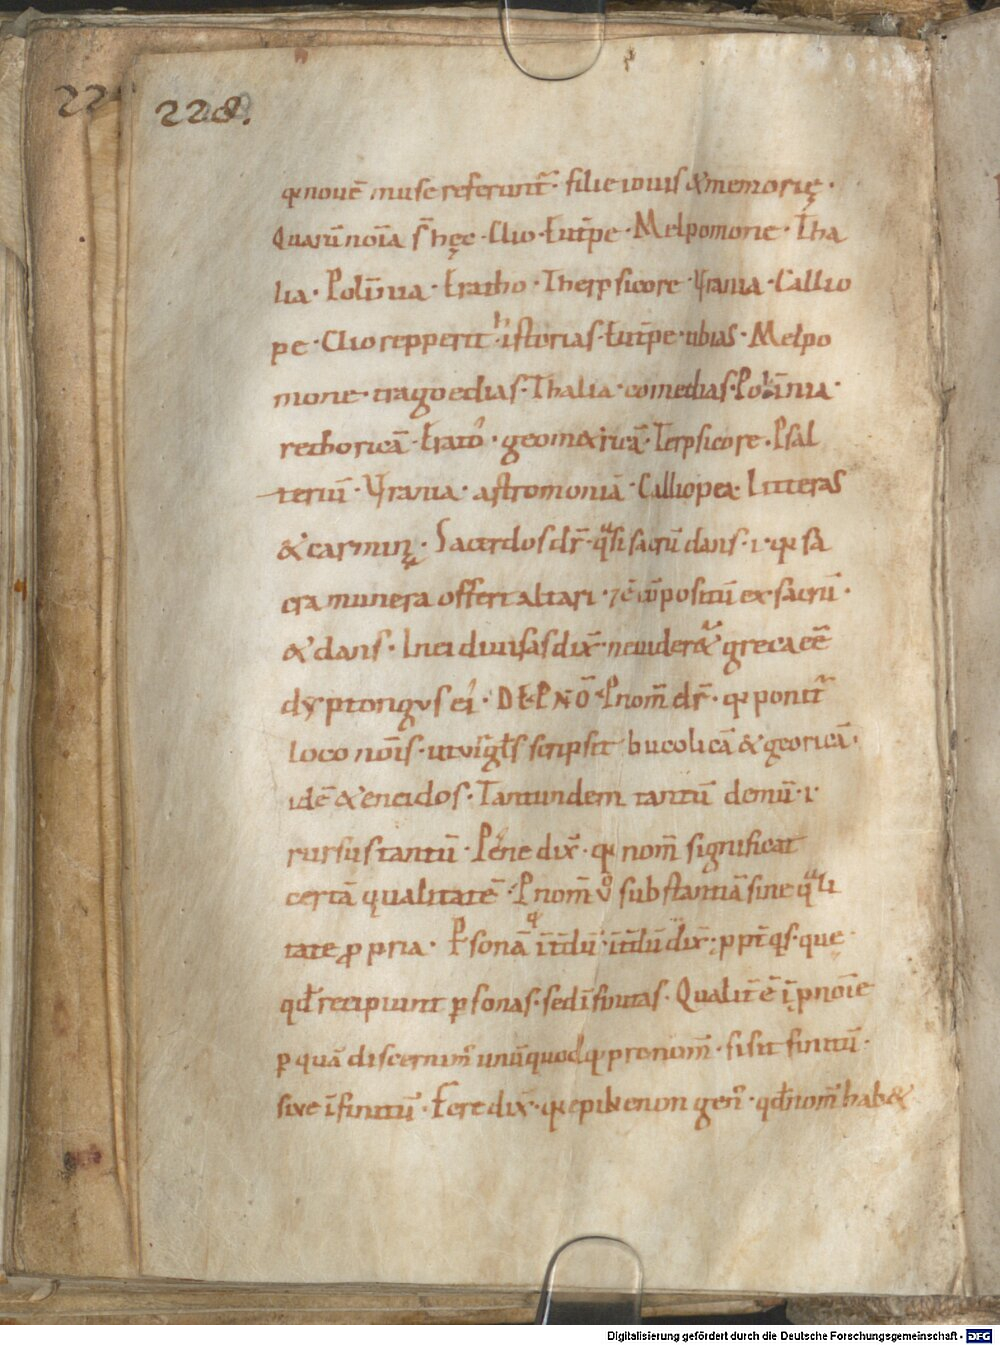 22
228.
qꝛ nouē muse referunt̄· filie iouis &memorię·
Quarū noīa s̄ hęc·Clio·Eut̄pe·Melpomone·Tha
lia·Polīnia·Eratho·Therpsicore·Vrania·Callio
pe·Clio repperit historias·Eut̄pe·tibias·Melpo
mone·tragoedias·Thalia·comedias·Polīnia·
rethoricā·Erato·geom&ricā·Terpsicore·Psal
teriū·Vrania·astromoniā·Calliopea·Litteras
&carminꝫ·Sacerdos dr̄·qͣsi sacrū dans·i·qꝛ sā
cra munera offert altari·⁊ē cōpositū ex sacrū·
&dans·Inei diuisas dix̄·ne uider&ͬ greca eē̄
dyptongvs ei·DE·P NŌ·Pnom̄ dr̄·qꝛ ponit̄
loco noīs·ut virgł̄s scripsit bucolicā &georicā·
idē &eneidos·Tantundem tantū demū·i·
rursus tantū·Pene dix̄·qꝛ nom̄ significat
certā qualitatē·Pnom̄ v̊ substantiā sine qͣli
tate ꝓpria·P̱sonā īt̄dū·īt̄dū dix̄·ꝓpt̄ qs·que
qd̄ recipiunt ꝑsonas·sed īfinitas·Qualit̄ē ī pnoīe
ꝑ quā discernim̄ unūquodqꝫ pronom̄·si sit finitū·
sive īfinitū·Fere dix̄·qꝛ epikenon gen̄·qd̄ nom̄ hab&
Digitalisierung gefördert durch die Deutsche Forschungsgemeinschaft - DFG